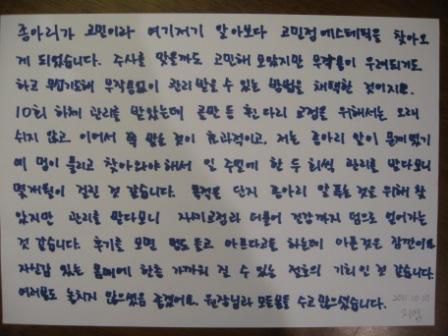 종아리가 고민이라 여기저기 알아보다 고민점에스테틱을 찾아오
게 되었습니다. 주사를 맞을까도 고민해 보았지만 부작용이 우려되기도
하고 무섭기도해 부작용없이 관리받을 수 있는 방법을 채택한 것이지요.
10회 하체 관리를 받았는데 골반 등 휜다리 교정을 위해서는 오래
쉬지 않고 이어서 쭉 받는 것이 효과적이고, 저는 종아리 알이 문제였기
에 멍이 풀리고 찾아와야해서 일주일에 한 두 회씩 관리를 받다보니
몇개월이 걸린 것 같습니다. 목적은 단지 종아리 알 푸는 것을 위해 찾
았지만 관리를 받다보니 자세교정과 더불어 건강까지 덤으로 얻어가는
것 같습니다. 후기를 보면 멍도 들고 아프다고들 하는데 아픈것은 잠깐이고
자신감 있는 몸매에 한층 가까워 질 수 있는 절호의 기회인 것 같습니다.
여러분도 놓치지 않으셨음 좋겠어요. 원장님과 모든분들 수고많으셨습니다.
2011.10.01